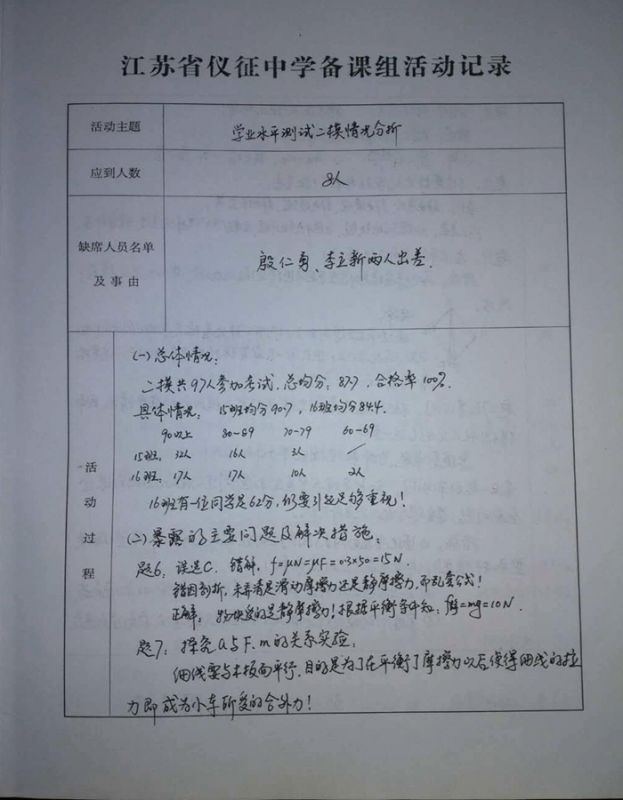 江苏省仪征中学备课组活动记录
活动主题
学业水平测试二模情况分析
应到人数
8人
缺席人员名单
及事由
殷仁勇、李立新两人出差.
活动过程
(一)总体情况:
二模共97人参加考试.总均分:87.7,合格率100%.
具体情况:15班均分90.7,16班均分84.4.
90以上 80-89 70-79 60-69
15班: 32人 16人 3人 /
16班: 17人 17人 10人 2人
16班有一位同学是62分,仍要引起足够重视!
(二)暴露的主要问题及解决措施:
题6:误选C.错解,f=μN=μF=0.3×50=15N.
错因剖析,未弄清是滑动摩擦力还是静摩擦力,而乱套公式!
正解,物块受的是静摩擦力!根据平衡条件知:f静=mg=10N.
题7:探究a与F.m的关系实验:
细线要与木板面平行,目的是为了在平衡了摩擦力以后使得细线的拉
力即成为小车所受的合外力!